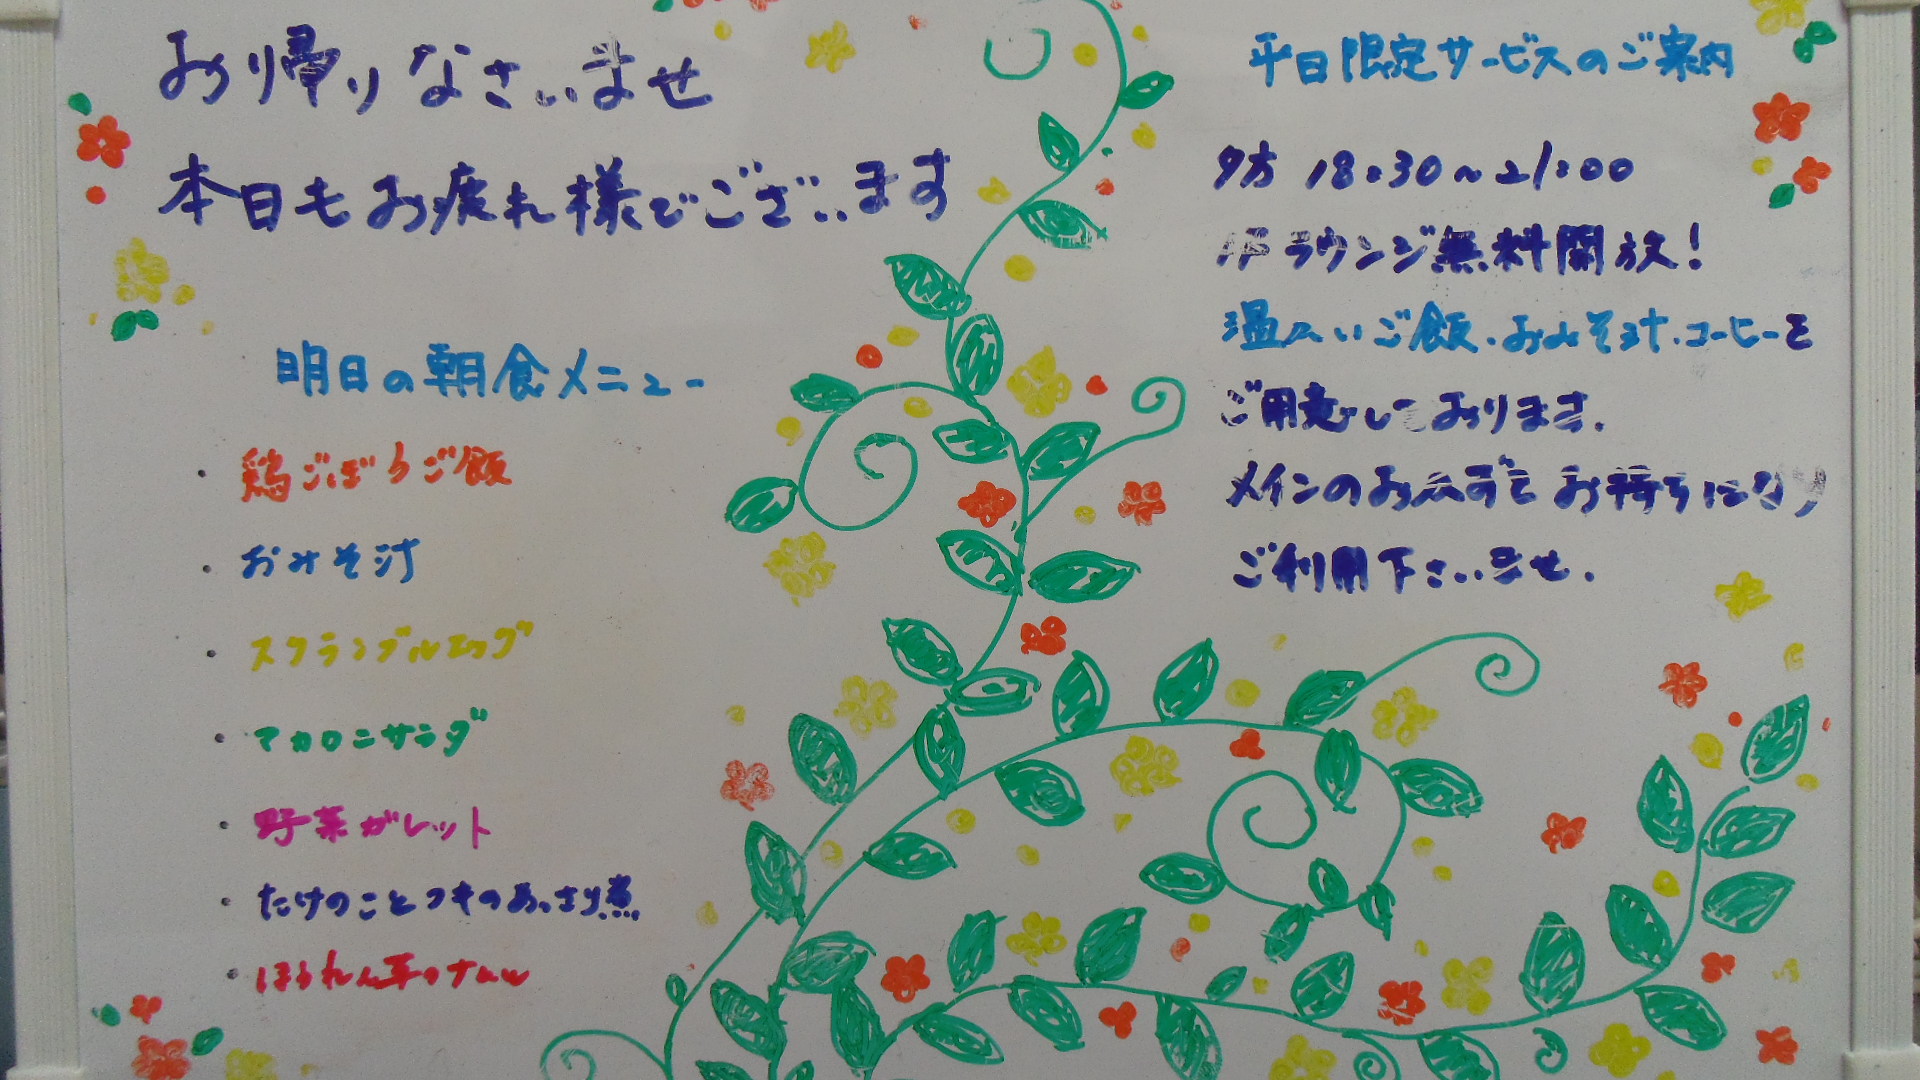 お帰りなさいませ
本日もお疲れ様でございます
明日の朝食メニュー
・鶏ごぼうご飯
・おみそ汁
・スクランブルエッグ
・マカロニサラダ
・野菜ガレット
・たけのことフキのあっさり煮
・ほうれん草のナムル
平日限定サービスのご案内
夕方 18:30~21:00
1Fラウンジ無料開放!
温かいご飯.おみそ汁.コーヒーを
ご用意しております.
メインのおかずをお持ちになり
ご利用下さいませ.